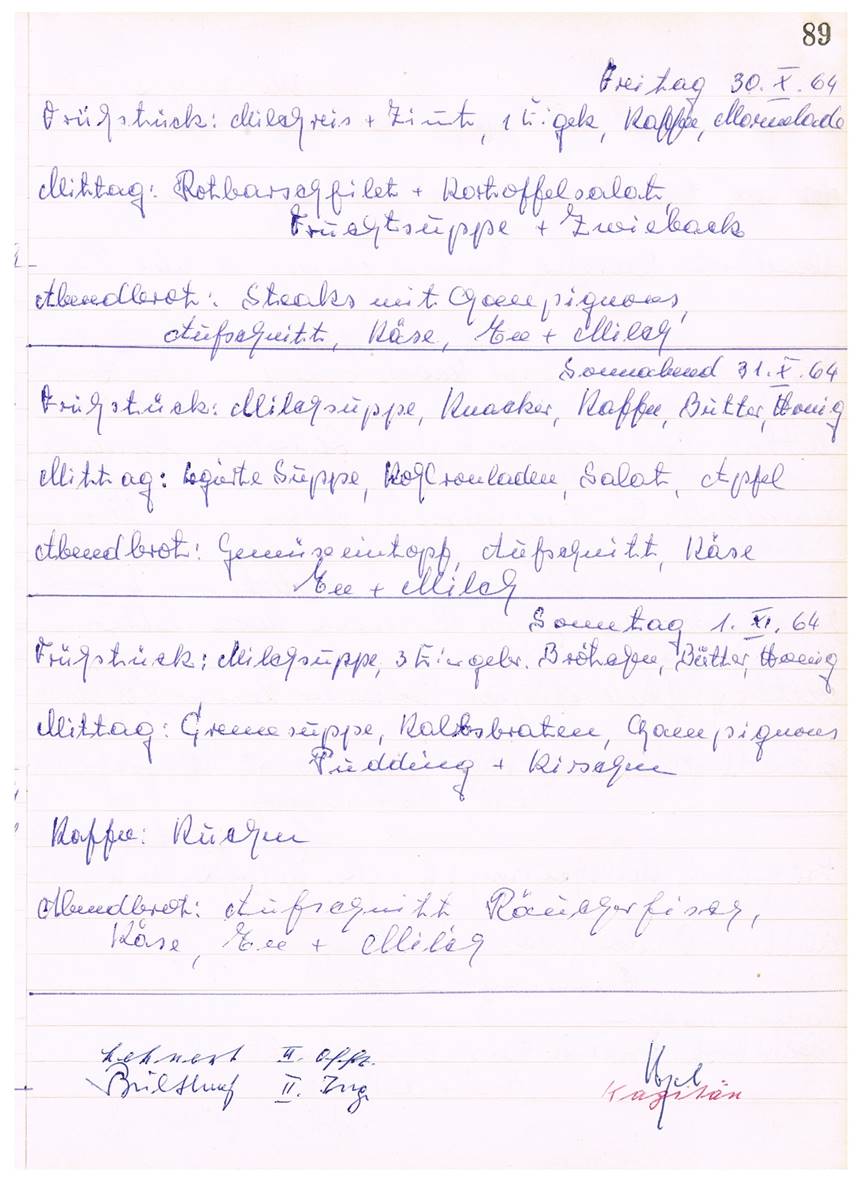 89
Freitag 30.X.64
Frühstück: Milchreis + Zimt, 1 Ei gek, Kaffee, Marmelade
Mittag: Rotbarschfilet + Kartoffelsalat,
Fruchtsuppe + Zwieback
Abendbrot: Steaks mit Champignons,
Aufschnitt, Käse, Tee + Milch
Sonnabend 31.X.64
Frühstück: Milchsuppe, Knacker, Kaffee, Butter, Honig
Mittag: legierte Suppe, Kohlrouladen, Salat, Apfel
Abendbrot: Gemüseeintopf, Aufschnitt, Käse
Tee + Milch
Sonntag 1.XI.64
Frühstück: Milchsuppe, 3 Ei in gebr. Butter, Honig
Mittag: Cremesuppe, Kalbsbraten, Champignons
Pudding + Kirschen
Kaffee: Kuchen
Abendbrot: Aufschnitt Räucherfisch,
Käse, Tee + Milch
Lehnert II. Offz.
II. Ing.
Kapitän